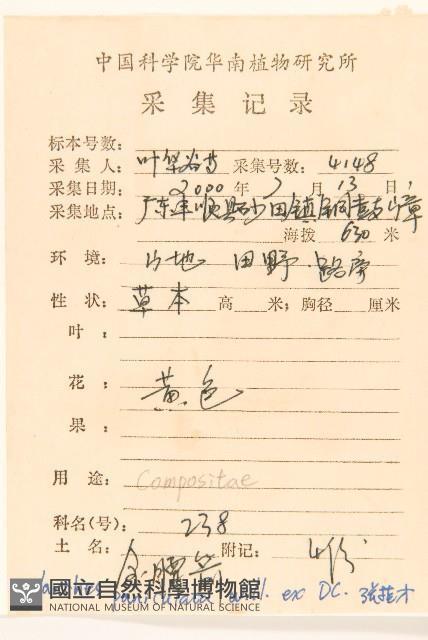 中国科学院华南植物研究所
采集记录
标本号数:
采集人: 叶华谷等 采集号数: 4148
采集日期: 2000 年 7 月 13 日
采集地点: 广东丰顺县砂田镇铜鼓嶂
海拨 630 米
环境: 山地 田野 路旁
性状: 草本 高 米; 胸径 厘米
叶:
花: 黄色
果:
用途: Compositae
科名(号): 238
土名: 附记: 4份
ex DC.
國立自然科學博物館
NATIONAL MUSEUM OF NATURAL SCIENCE